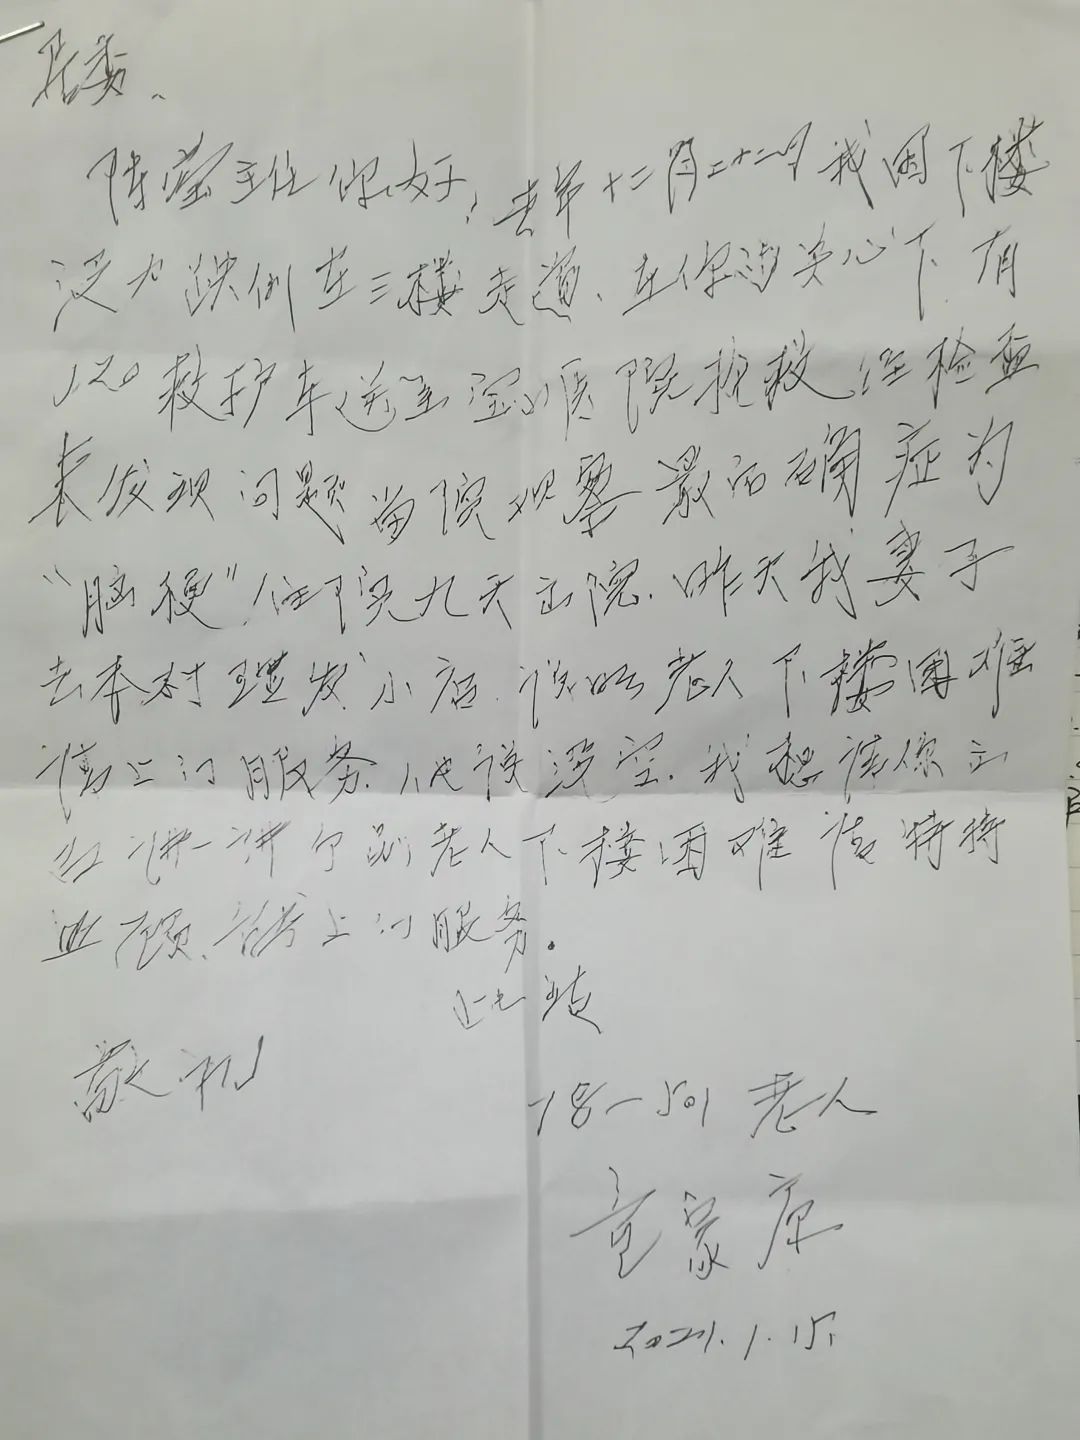 居委、
陈莹主任你好！去年十二月二十二日我因下楼
没力跌倒在三楼走道、在你的关心下、有
120救护车送至宝山医院抢救经检查
未发现问题留院观察最后确症为
“脑梗”住院九天出院.昨天我妻子
去本村理发小店.说明老人下楼困难
请上门服务、他说没空.我想请你主
任讲一讲个别老人下楼困难请特将
照顾、给予上门服务.
此致
敬礼
78-501 老人
童家康
2021.1.15.